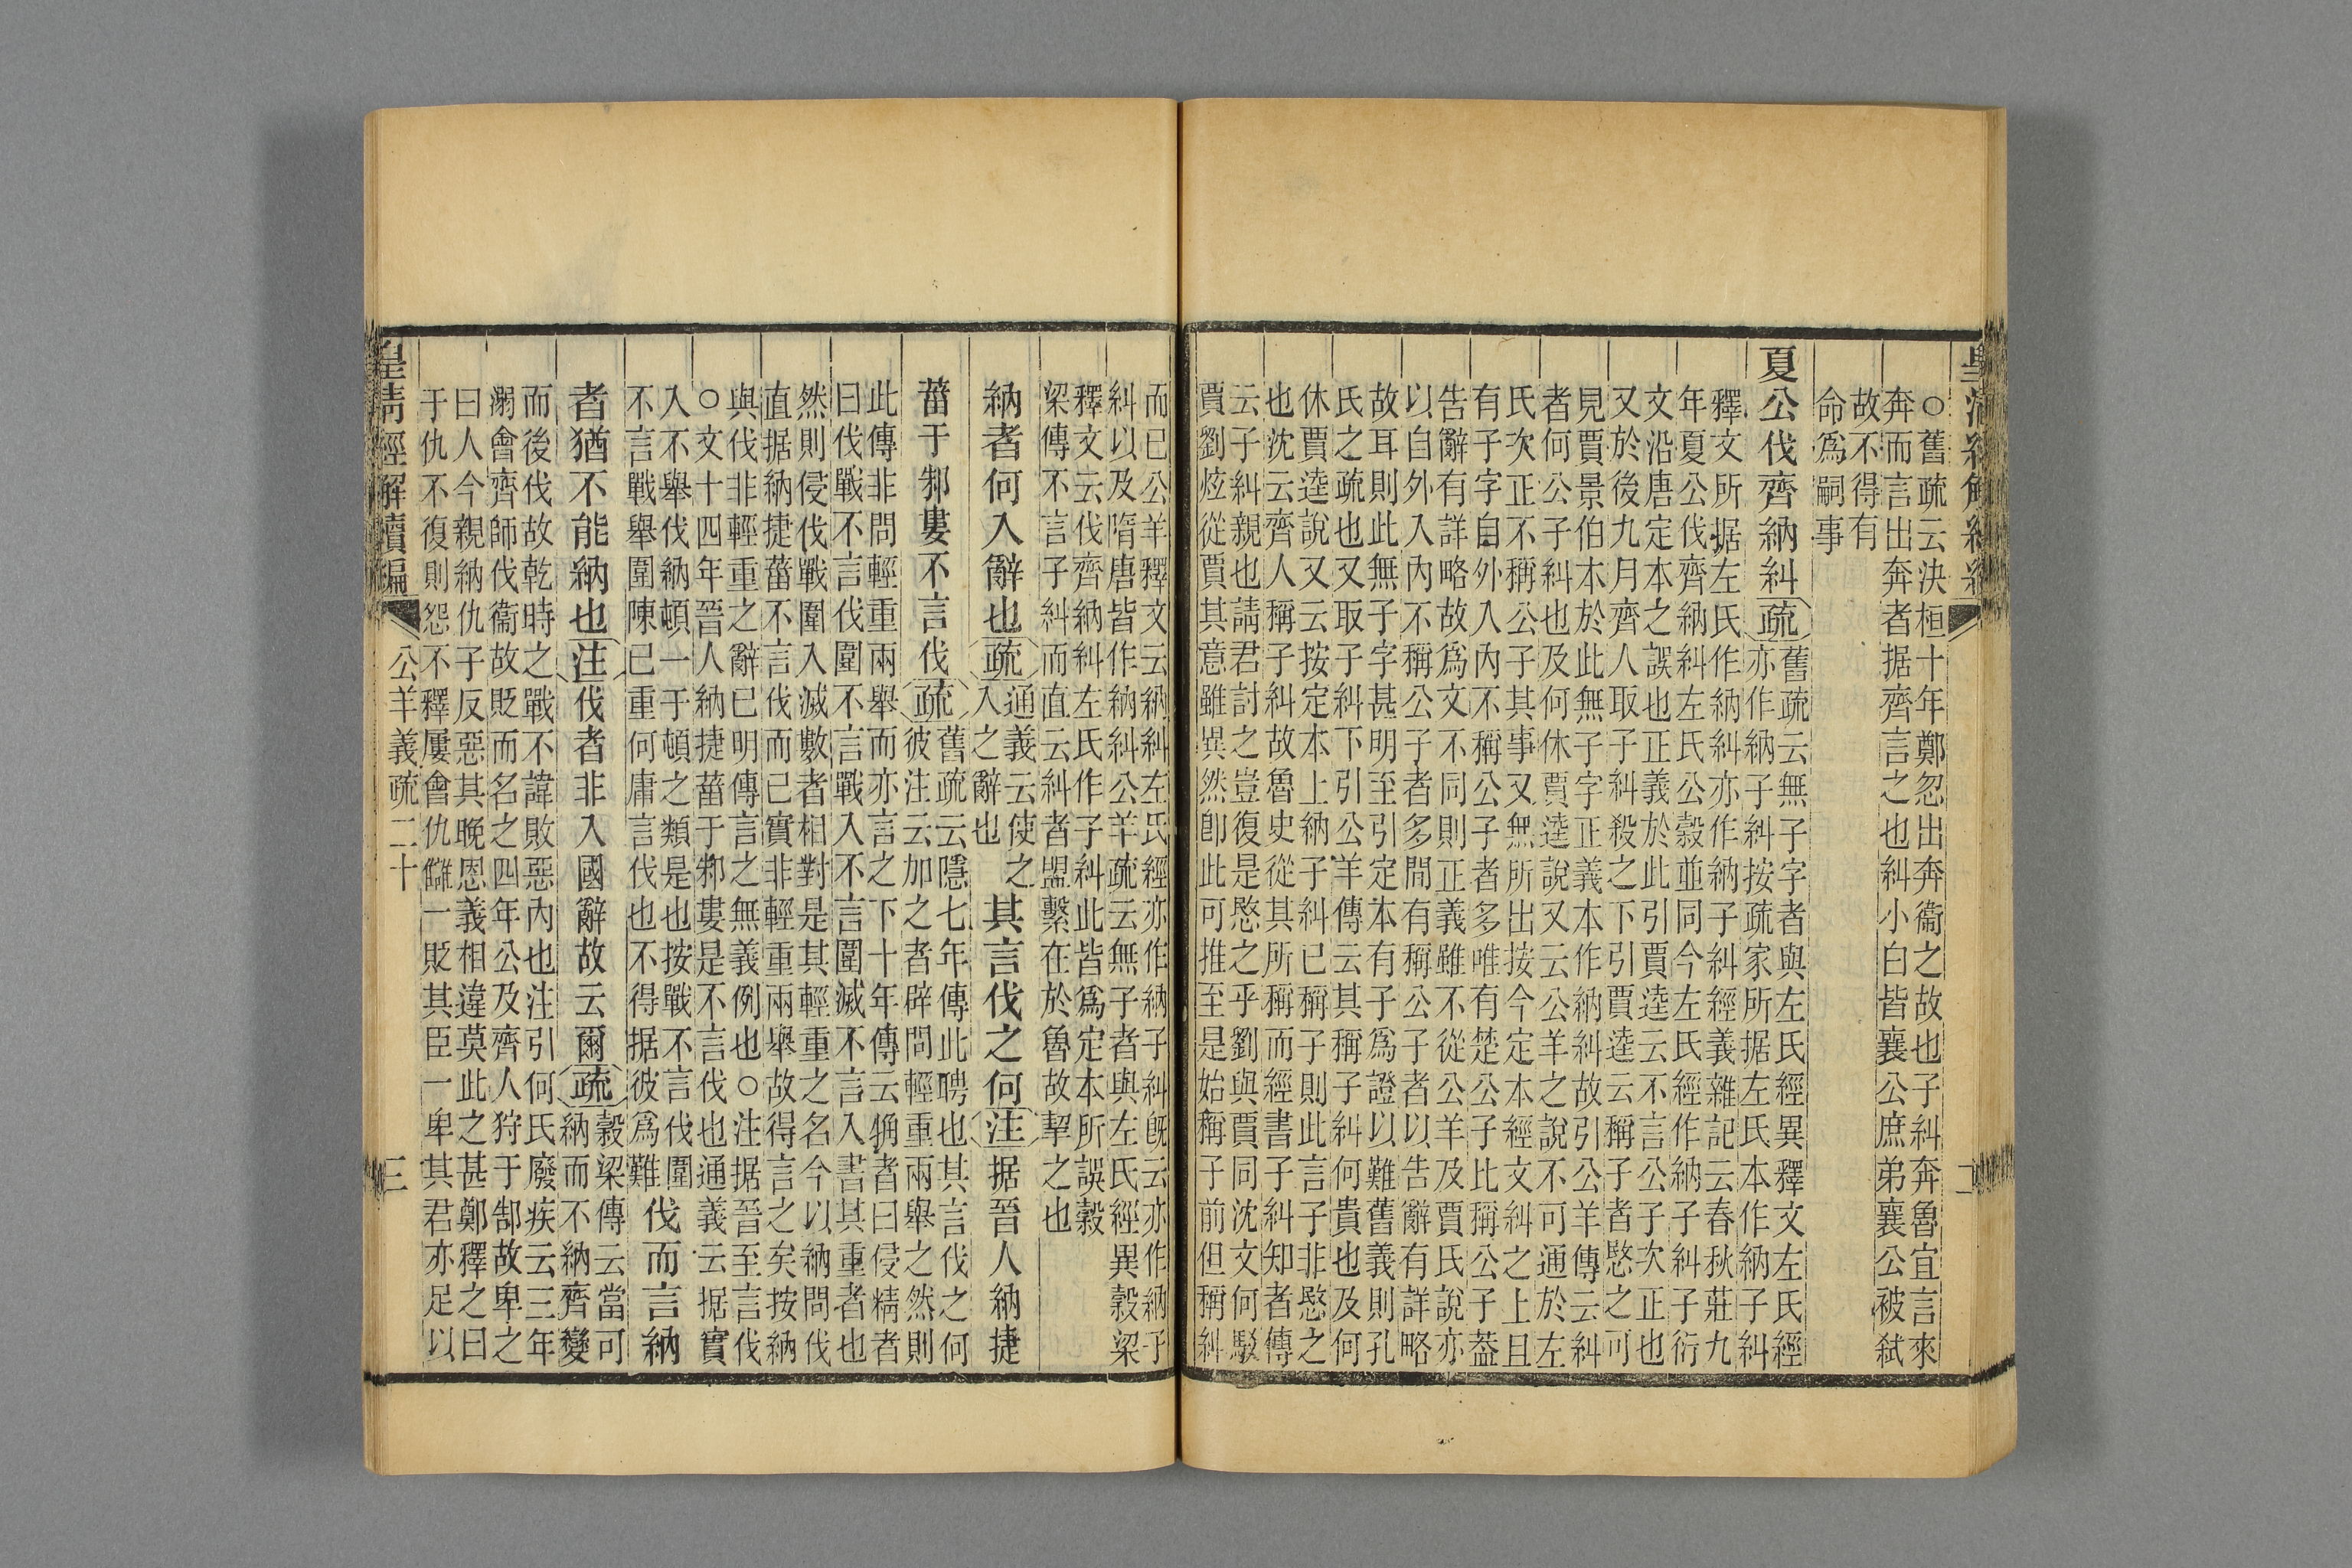 皇清經解續編
二
○舊疏云決桓十年鄭忽出奔衞之故也子糾奔魯宜言來
奔而言出奔者据齊言之也糾小白皆襄公庶弟襄公被弑
故不得有
命爲嗣事
夏公伐齊納糾疏
舊疏云無子字者與左氏經異釋文左氏經
亦作納子糾按疏家所据左氏本作納子糾
釋文所据左氏作納糾亦作納子糾經義雜記云春秋莊九
年夏公伐齊納糾左氏公穀並同今左氏經作納子糾子衍
文沿唐定本之誤也正義於此引賈逵云不言公子次正也
又於後九月齊人取子糾殺之下引賈逵云稱子者愍之可
見賈景伯本於此無子字正義本作納糾故引公羊傳云糾
者何公子糾也及何休賈逵說又云公羊之說不可通於左
氏次正不稱公子其事又無所出按今定本經文糾之上且
有子字自外入內不稱公子者多唯有楚公子比稱公子蓋
告辭有詳略故爲文不同則正義雖不從公羊及賈氏說亦
以自外入內不稱公子者多閒有稱公子者以告辭有詳略
故耳則此無子字甚明至引定本有子爲證以難舊義則孔
氏之疏也又取子糾下引公羊傳云其稱子糾何貴也及何
休賈逵說又云按定本上納子糾已稱子則此言子非愍之
也沈云齊人稱子糾故魯史從其所稱而經書子糾知者傳
云子糾親也請君討之豈復是愍之乎劉與賈同沈文何駁
賈劉炫從賈其意雖異然卽此可推至是始稱子前但稱糾
而已公羊釋文云納糾左氏經亦作納子糾既云亦作納子
糾以及隋唐皆作納糾公羊疏云無子者與左氏經異穀梁
釋文云伐齊納糾左氏作子糾此皆爲定本所誤穀
梁傳不言子糾而直云糾者盟繫在於魯故挈之也
納者何入辭也疏
通義云使之
入之辭也
其言伐之何注据晉人納捷
菑于邾婁不言伐疏
舊疏云隱七年傳此聘也其言伐之何
彼注云加之者辟問輕重兩舉之然則
此傳非問輕重兩舉而亦言之下十年傳云觕者曰侵精者
曰伐戰不言伐圍不言戰入不言圍滅不言入書其重者也
然則侵伐戰圍入滅數者相對是其輕重之名今以納問伐
直据納捷菑不言伐而已實非輕重兩舉故得言之矣按納
與伐非輕重之辭已明傳言之無義例也○注据晉至言伐
○文十四年晉人納捷菑于邾婁是不言伐也通義云据實
入不舉伐納頓一于頓之類是也按戰不言伐圍
不言戰舉圍陳已重何庸言伐也不得据彼爲難
伐而言納
者猶不能納也注伐者非入國辭故云爾疏
穀梁傳云當可
納而不納齊變
而後伐故乾時之戰不諱敗惡內也注引何氏廢疾云三年
溺會齊師伐衞故貶而名之四年公及齊人狩于郜故卑之
曰人今親納仇子反惡其晚恩義相違莫此之甚鄭釋之曰
于仇不復則怨不釋屢會仇讎一貶其臣一卑其君亦足以
皇清經解續編
公羊義疏二十
三